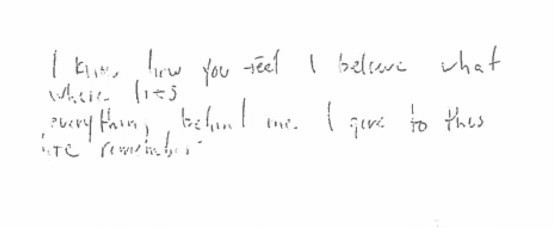 I know how you feel I believe what
where lies
everything behind me. I give to this
remember